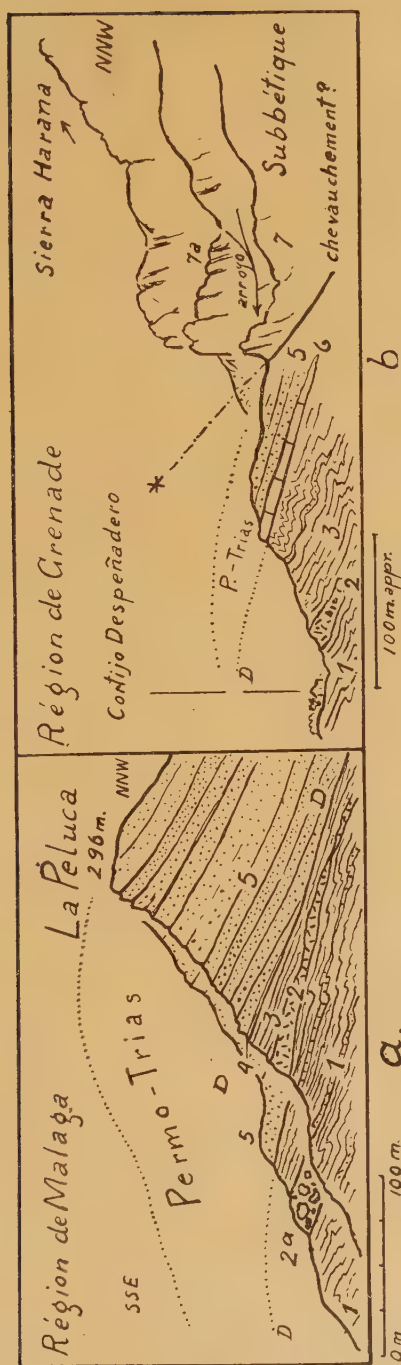 Région de Malaga
La Peluca
296 m.
SSE
NNW
Permo-Trias
D
D
D
5
5
4
3
2
2a
1
1
0 m.
100 m.
a.
Région de Grenade
Sierra Harana
NNW
Cortijo Despeñadero
*
7a
arroyo
Subbétique
7
chevauchement?
P.-Trias
D
5
6
3
2
1
100 m. appr.
b